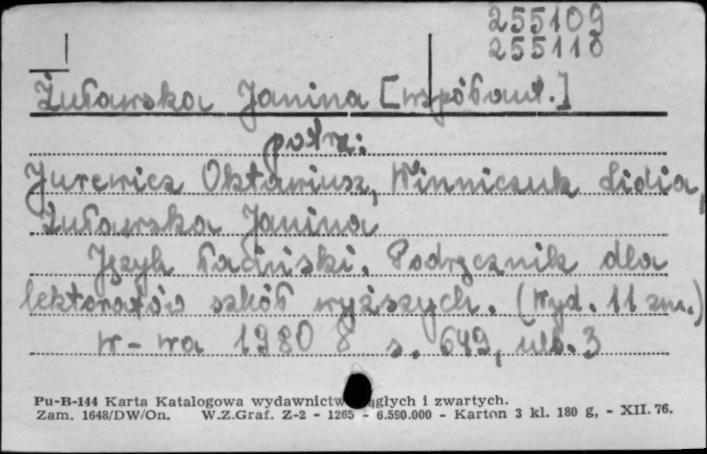 255109
255110
Żuławska Janina [współaut.]
patrz:
Jurewicz Oktawiusz, Winniczuk Lidia,
Żuławska Janina
Język łaciński. Podręcznik dla
lektoratów szkół wyższych. (Wyd. 11 zm.)
W-wa 1980 8 s. 649, nlb. 3
Pu-B-144 Karta Katalogowa wydawnictw ągłych i zwartych.
Zam. 1648/DW/On. W.Z.Graf. Z-2 - 1265 - 6.590.000 - Karton 3 kl. 180 g, - XII. 76.